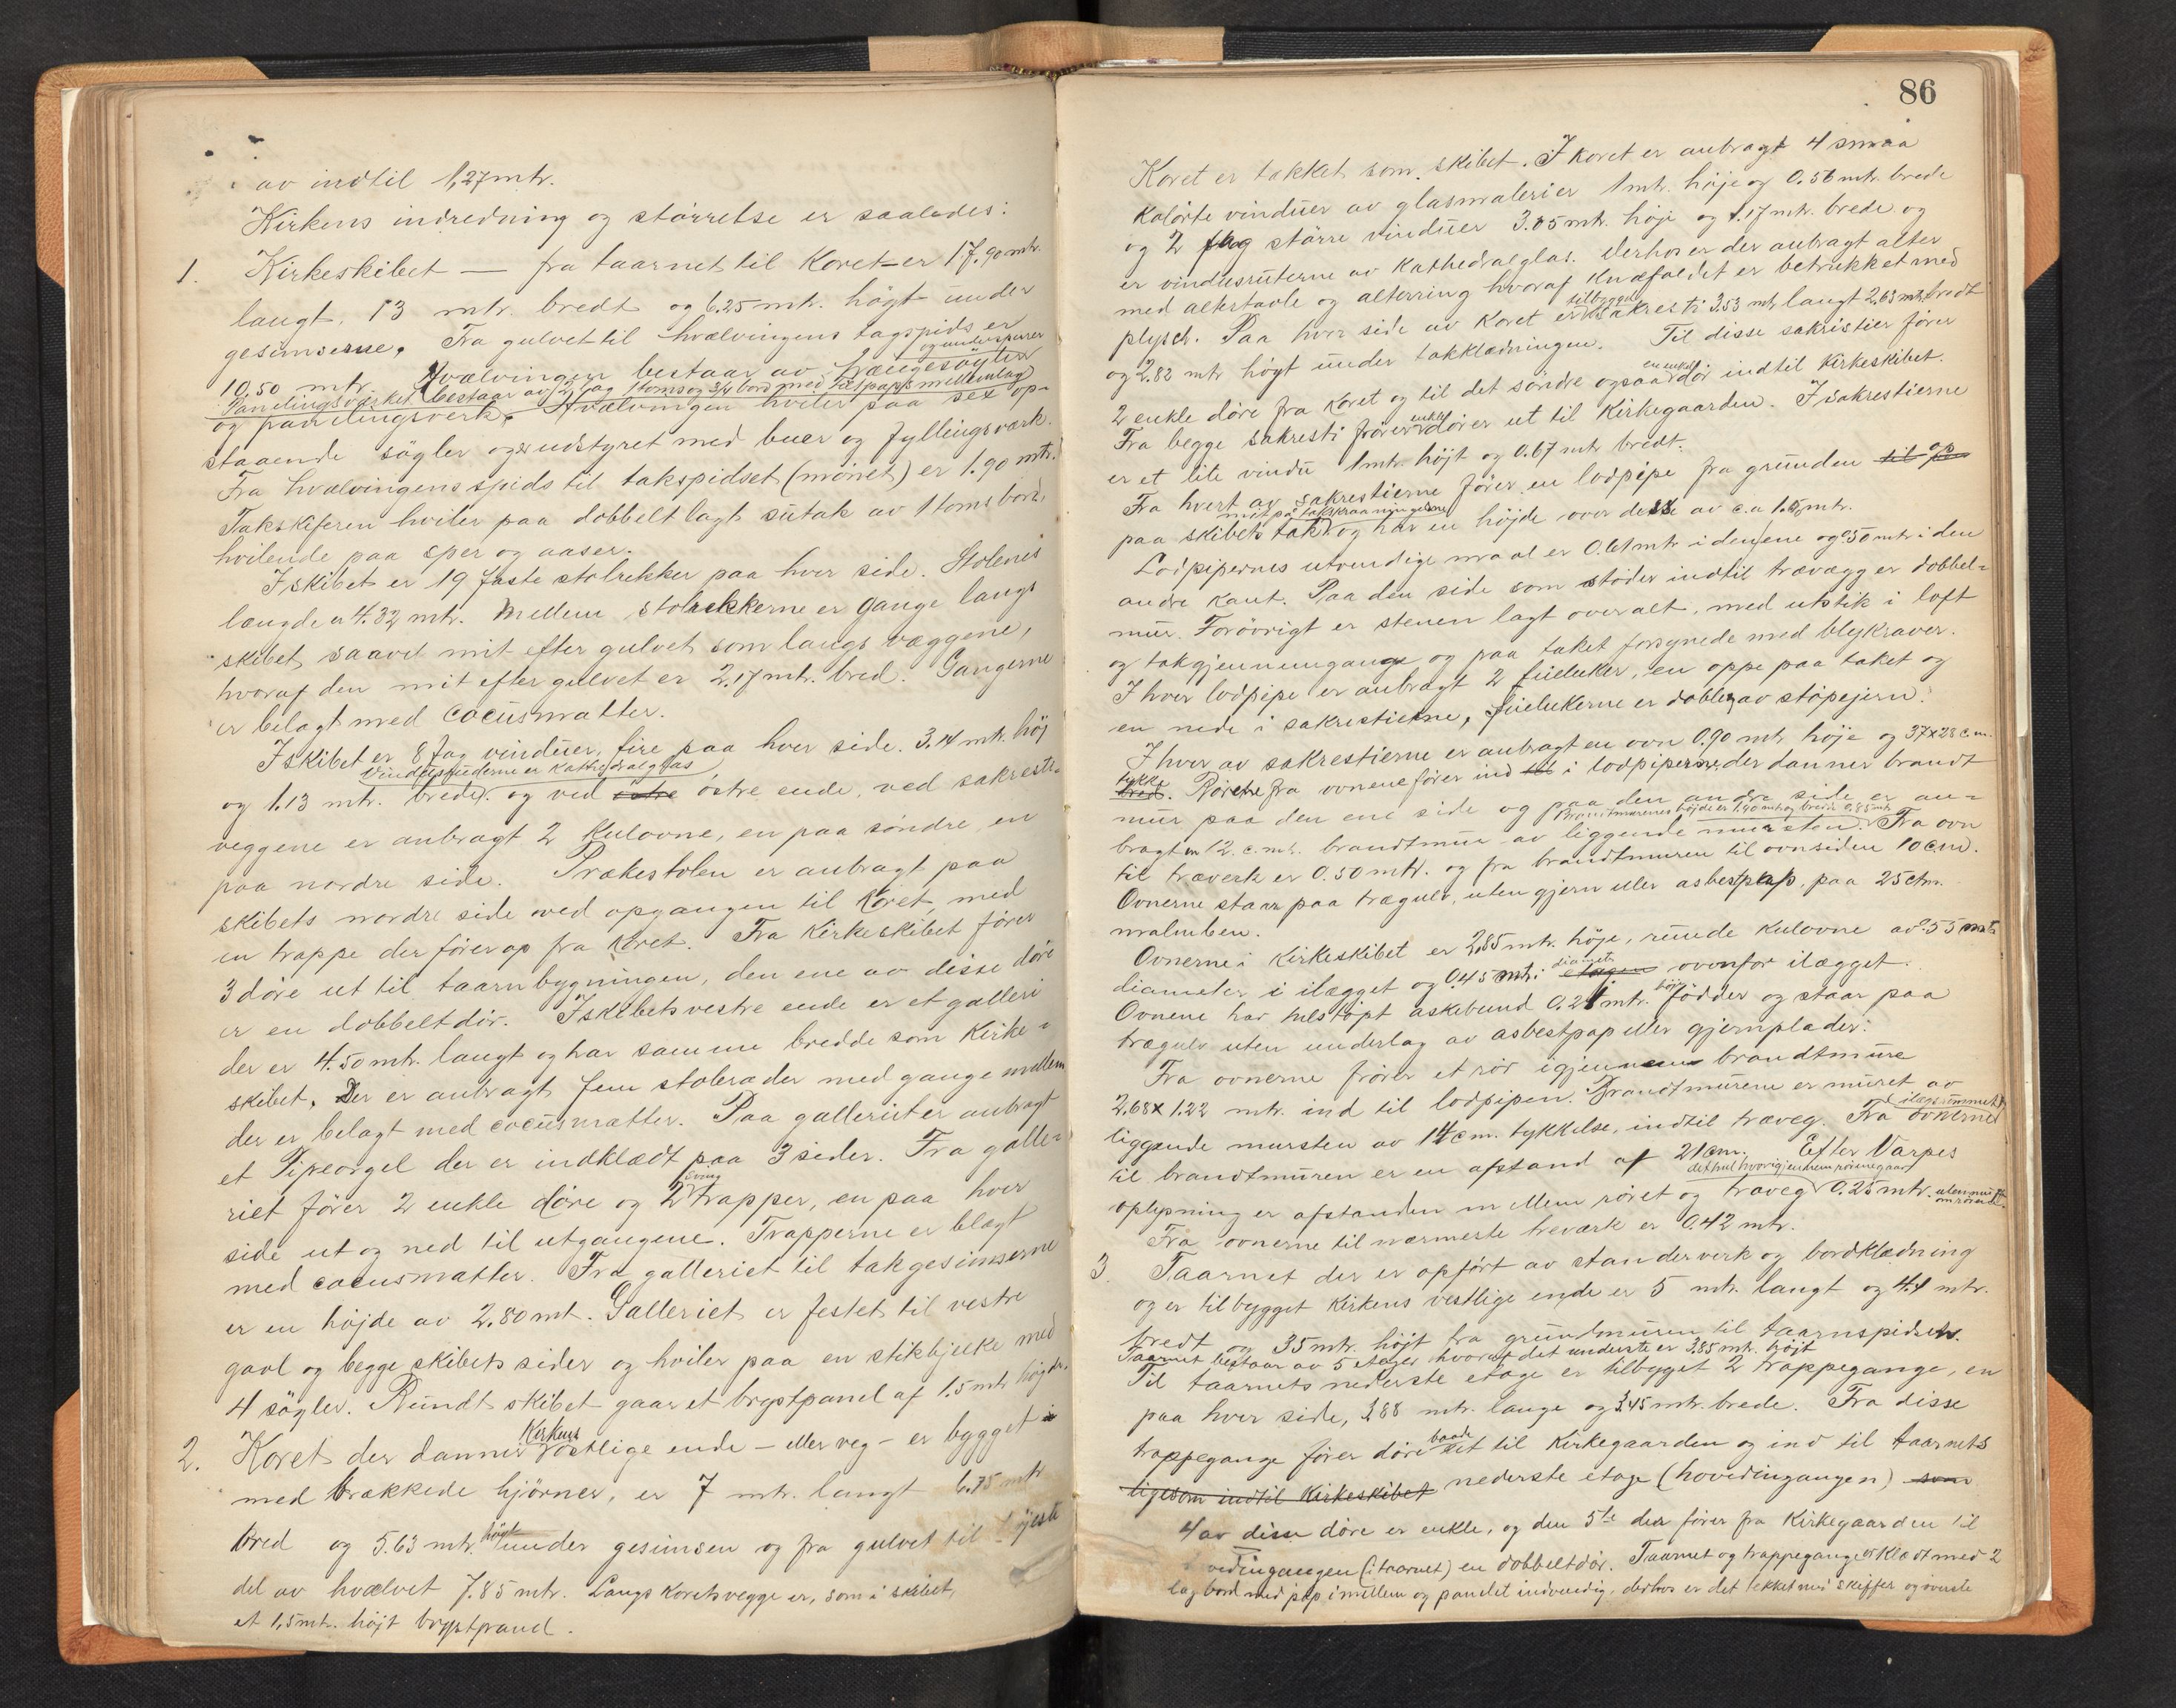 av indtil 1,27 mtr.
Kirkens indredning og större​lse er saaledes:
1. Kirkeskibet — fra taarnet til Koret – er 17.90 mtr.
langt, 13 mtr. bredt og 6.25 mtr. högt under
gesimserne. Fra gulvet til hvælvingens tagspids er
10,50 mtr. Hvælvingen bestaar av hængesögler og understperrer
Panelingsværket bestaar av 2 lag 1 toms og 3/4 bord med filtpap i mellemlag
og panelingsverk. Hvælvingen hviler paa sex op-
staaende søgler og er udstyret med buer og fyllingsværk.
Fra hvælvingens spids til takspidset (mönet) er 1.90 mtr.
Takskiferen hviler paa dobbelt lagt sutak av 1 toms bord,
hvilende paa sper og aaser.
I skibet er 19 faste stolrekker paa hver side. Stolenes
længde er 4.32 mtr. Mellem stolrekkerne er gange langs
skibet saavel mit efter gulvet som langs væggene,
hvoraf den mit efter gulvet er 2.17 mtr. bred. Gangerne
er belagt med cocusmatter.
I skibet er 8 fag vinduer, fire paa hver side. 3.14 mtr. höj
Vindusruderne er Kathedralglas
og 1.13 mtr. brede. og ved östre östre ende, ved sakresti-
veggene er anbragt 2 Kulovne, en paa söndre en
paa nordre side. Prækestolen er anbragt paa
skibets nordre side ved opgangen til Koret, med
en trappe der förer op fra Koret. Fra Kirkeskibet förer
3 döre ut til taarnbygningen, den ene av disse döre
er en dobbeltdör. I skibets vestre ende er et galleri
der er 4.50 mtr. langt og har samme bredde som Kirke-
skibet. Der er anbragt fem stolerader med gange mellem
der er belagt med cocusmatter. Paa galleriet er anbragt
et Pipeorgel der er indklædt paa 3 sider. Fra galle-
riet förer 2 enkle döre og 2 sving trapper, en paa hver
side ut og ned til utgangene. Trapperne er belagt
med cocusmatter. Fra galleriet til takgesimserne
er en höjde av 2.80 mt. Galleriet er festet til vestre
gavl og begge skibets sider og hviler paa en stikbjelke med
4 søgler. Rundt skibet gaar et brystpanel af 1.5 mtr höjde.
2. Koret der danner Kirkens östlige ende – eller veg – er bygget i
med brækkede hjörner, er 7 mtr. langt 6.75 mtr
bred og 5.63 mtr. högt under gesimsen og fra gulvet til höjeste
del av hvælvet 7.85 mtr. Langs Korets vegge er, som i skibet,
et 1,5 mtr. höjt brystpanel.
86
Koret er takket som skibet. I Koret er anbragt 4 smaa
Kolörte vinduer av glasmalerier 1 mtr. höje og 0.56 mtr. brede
og 2 fag större vinduer 3.05 mtr. höje og 1.17 mtr. brede og
er vindusruterne av Kathedralglas. Derhos er der anbragt alter
med altertavle og alterring hvoraf Knæfaldet er betrukket med
plysch. Paa hver side av Koret er tilbygget sakresti 3.53 mtr langt 2.63 mtr. bredt
og 2.82 mtr höyt under takklædningen. Til disse sakristier förer
2 enkle döre fra Koret og til det söndre ogsaa en enkel dör indtil Kirkeskibet.
Fra begge sakresti förer enkle dörer ut til Kirkegaarden. I sakrestierne
er et lite vindu 1 mtr. höjt og 0.67 mtr bredt.
Fra hvert av sakrestierne förer en lodpipe fra grunden til op
paa skibets tak mit på takskraaningerne og har en höjde over dette av c.a 1.5 mtr.
Lodpipernes utvendige maal er 0.61 mtr i den ene og 0.50 mtr i den
andre Kant. Paa den side som stöder indtil trævægg er dobbel-
mur. Forövrigt er stenen lagt overalt, med utstik i loft
og takgjennemgange og paa taket forsynede med blykraver.
I hver lodpipe er anbragt 2 feieluker, en oppe paa taket og
en nede i sakrestierne, feielukerne er doble av stöpejern.
I hver av sakrestierne er anbragt en ovn 0.90 mtr. höje og 37x28 c.m.
tykke bred. Rörene fra ovnene förer ind til i lodpiperne, der danner brandt
mur paa den ene side og paa den andre side er an-
Brandtmurenes höjde er 1.40 mtr. og brede 0.85 mtr
bragt en 12. c.mtr. brandtmur av liggende mursten. Fra ovn
til træverk er 0.50 mtr. og fra brandtmuren til ovnsiden 10 cm.
Ovnerne staar paa trægulv, uten gjern eller asbestpap, paa 25 ctm.
malmben.
Ovnerne i Kirkeskibet er 2.85 mtr. höje, runde Kulovne av 0.55 mtr
diameter i ilægget og 0.45 mtr. i diameter etagen ovenfor ilægget.
Ovnene har helstöpt askebund 0.21 mtr. höje födder og staar paa
trægulv uten underlag av asbestpap eller gjernplader.
Fra ovnerne förer et rör igjennem brandtmure
2.68 x 1.22 mtr. ind til lodpipen. Brandtmurene er muret av
liggende mursten av 14 cm. tykkelse, indtil træveg. Fra ovnerne ilægsrummet
til brandtmuren er en afstand af 21 cm. Efter Varpes
oplysning er afstanden mellem röret og det hul hvorigjennem rörene gaar træveg 0.25 mtr. uten mur omrörende.
Fra ovnerne til nærmeste treværk er 0.42 mtr.
3. Taarnet der er opfört av standerverk og bordklædning
og er tilbygget Kirkens vestlige ende er 5 mtr. langt og 4.4 mtr.
bredt og 35 mtr. höjt fra grundmuren til taarnspidsen.
Taarnet bestaar av 5 etager hvoraf det underste er 3.85 mtr. höjt
Til taarnets nederste etage er tilbygget 2 trappegange, en
paa hver side, 3.88 mtr. lange og 3.45 mtr. brede. Fra disse
trappegange förer döre baade ut til Kirkegaarden og ind til taarnets
ligesom indtil Kirkeskibet nederste etage (hovedingangen) som
4 av disse döre er enkle, og den 5te der förer fra Kirkegaarden til
hovedingangen (i taarnet) en dobbeltdör. Taarnet og trappegange er klædt med 2
lag bord med pap imellem og panelet indvendig, derhos er det tekket med skiffer og överste